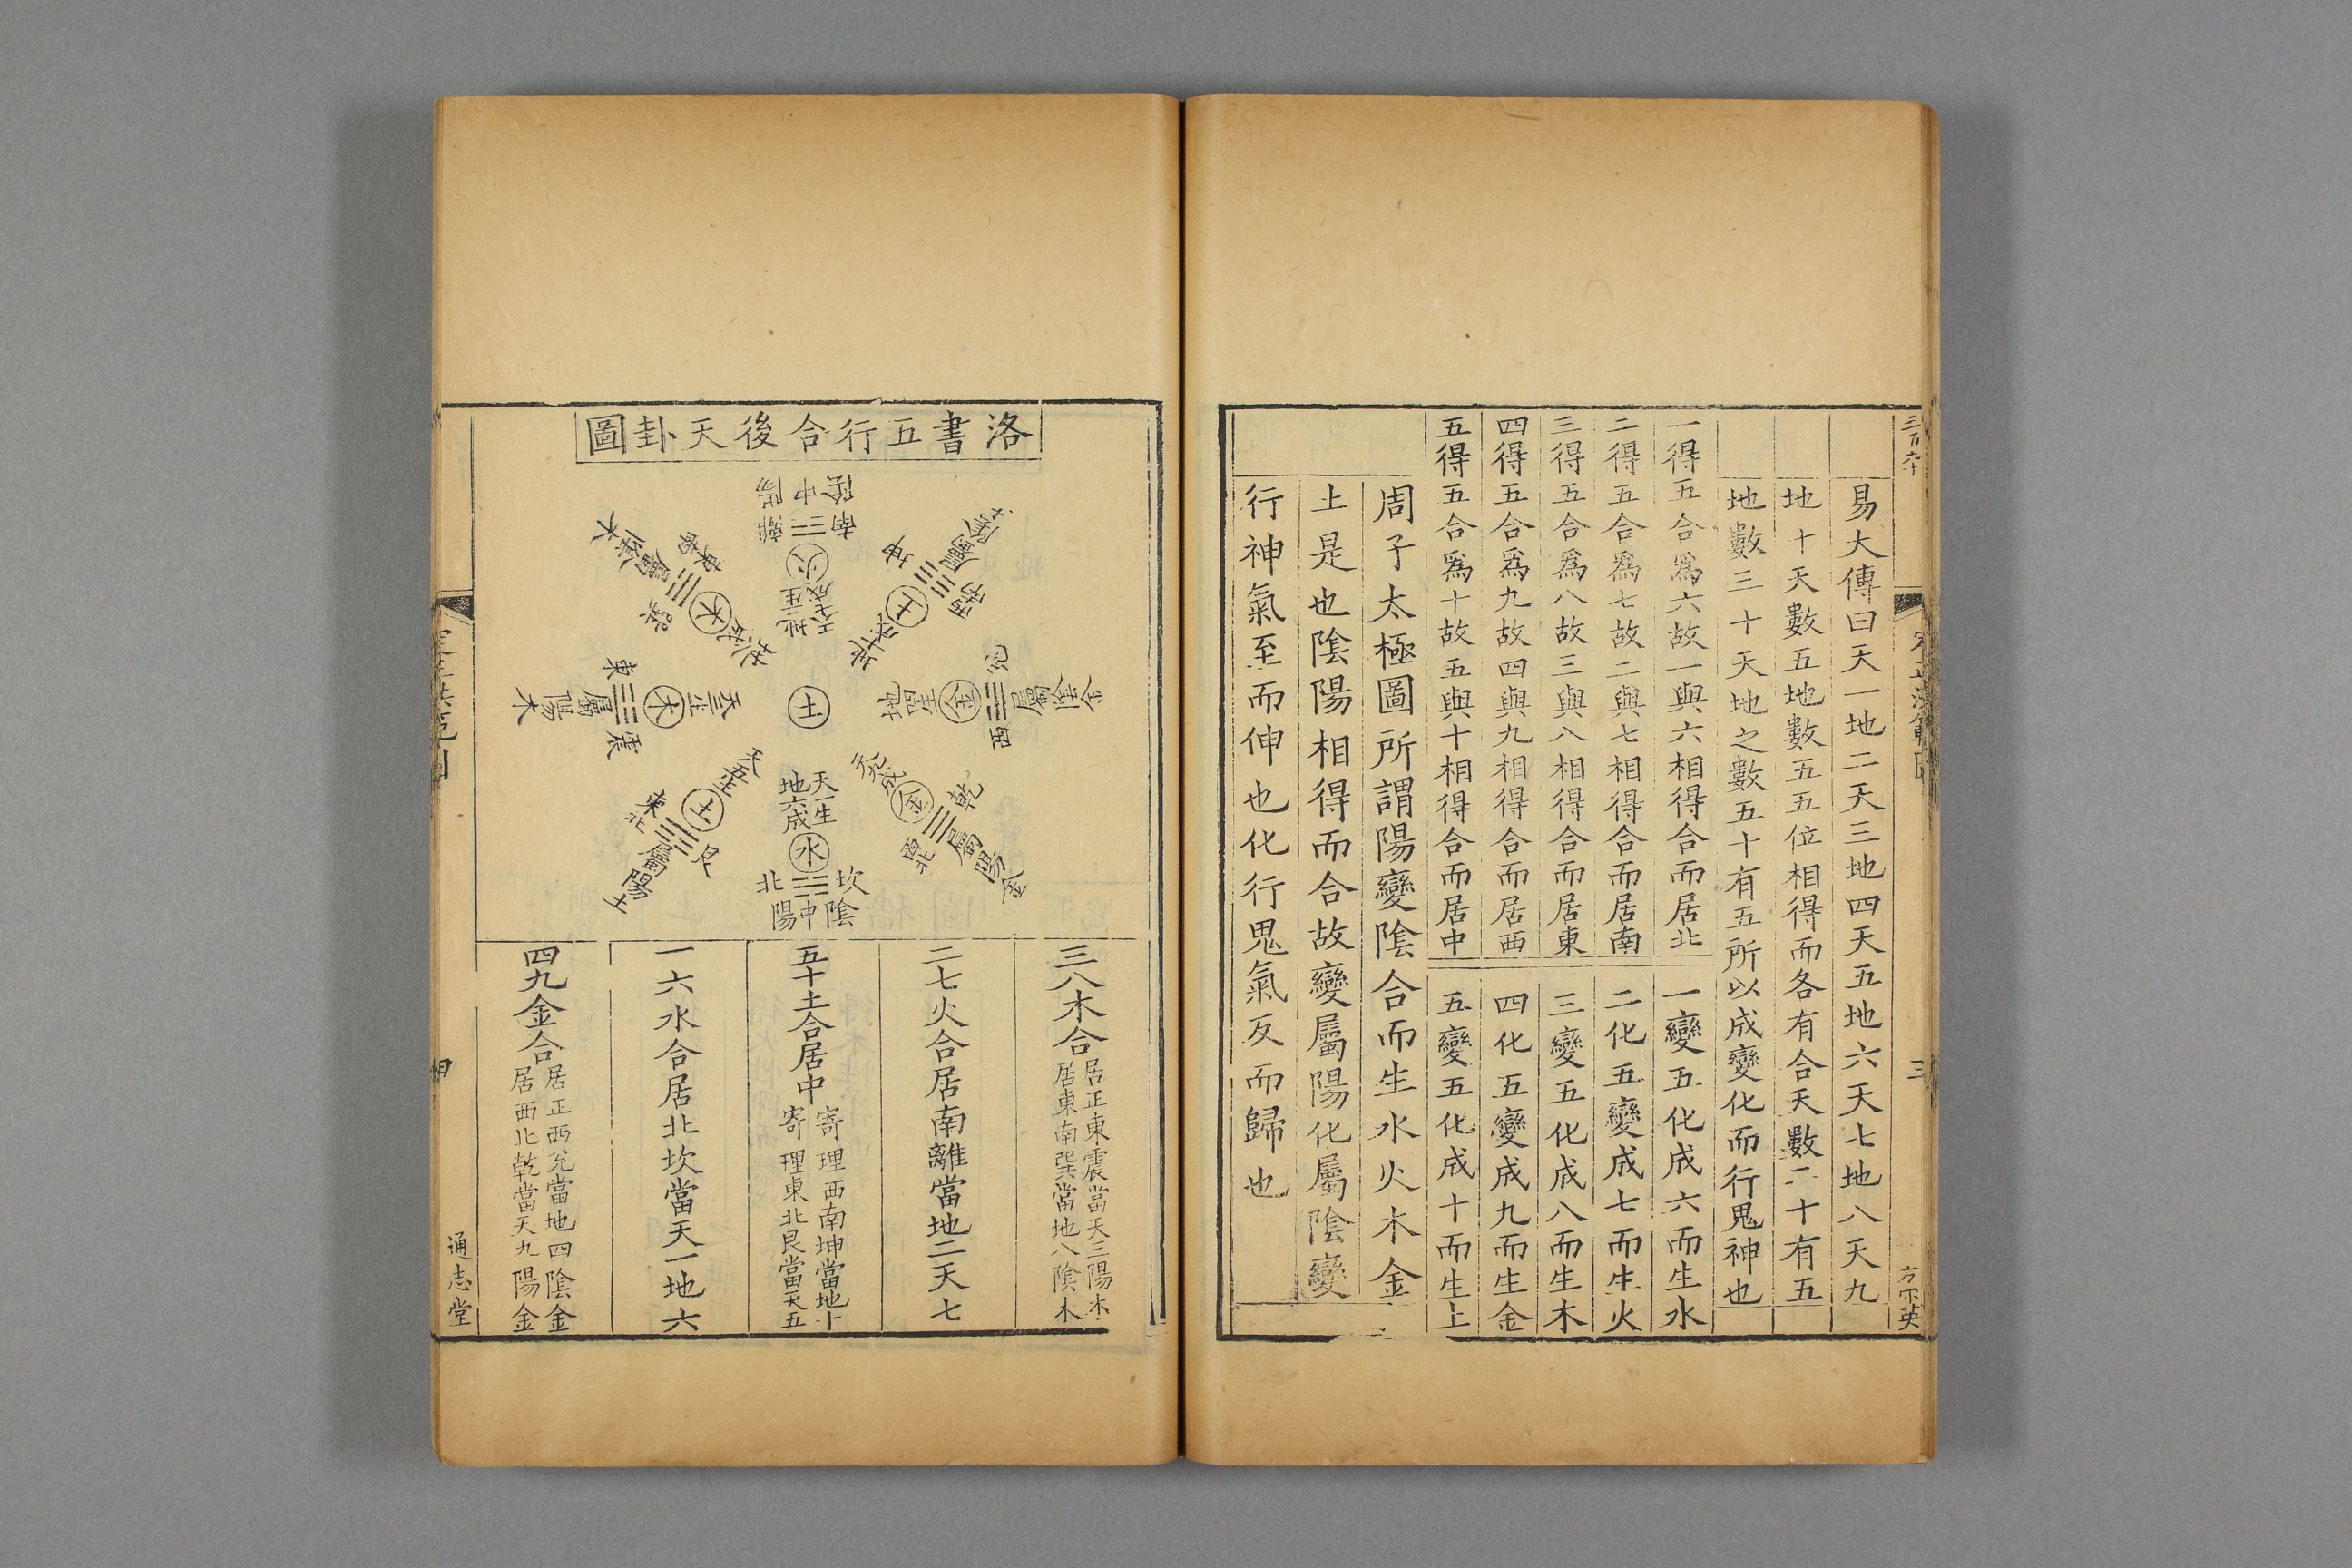 三百九十
定正洪範圖
三
方宗英
易大傳曰天一地二天三地四天五地六天七地八天九
地十天數五地數五五位相得而各有合天數二十有五
地數三十天地之數五十有五所以成變化而行鬼神也
一得五合爲六故一與六相得合而居北
一變五化成六而生水
二得五合爲七故二與七相得合而居南
二化五變成七而生火
三得五合爲八故三與八相得合而居東
三變五化成八而生木
四得五合爲九故四與九相得合而居西
四化五變成九而生金
五得五合爲十故五與十相得合而居中
五變五化成十而生土
周子太極圖所謂陽變陰合而生水火木金
土是也陰陽相得而合故變屬陽化屬陰變
行神氣至而伸也化行鬼氣反而歸也
洛書五行合後天卦圖
陰中陽
南
離
火
地二生
天七成
坤
西南
屬陰土
土
地十成
兌
西
屬陰金
金
地四生
乾
西北
屬陽金
金
天九成
天一生
地六成
水
坎
北
陰中陽
天五生
土
艮
東北
屬陽土
天三生
木
東
震
屬陽木
地八成
木
巽
東南
屬陰木
土
三八木合
居正東震當天三陽木
居東南巽當地八陰木
二七火合居南離當地二天七
五十土合居中
寄理西南坤當地十
寄理東北艮當天五
一六水合居北坎當天一地六
四九金合
居正西兌當地四陰金
居西北乾當天九陽金
通志堂